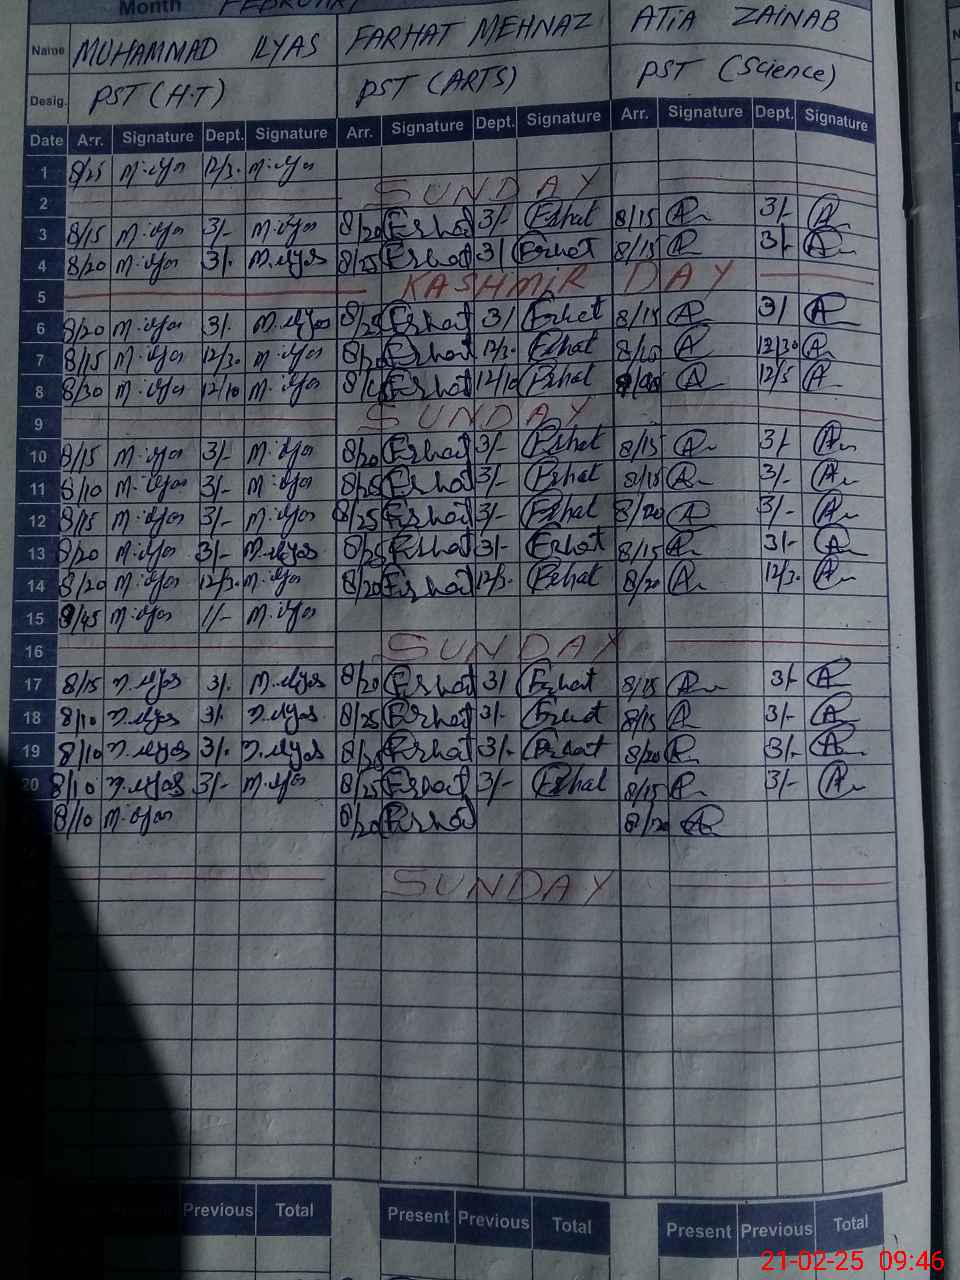 Month FEBRUARY
Name MUHAMMAD ILYAS FARHAT MEHNAZ ATIA ZAINAB
Desig. PST (H.T) PST (ARTS) PST (Science)
Date Arr. Signature Dept. Signature Arr. Signature Dept. Signature Arr. Signature Dept. Signature
1 8/25 M.ilyas 12/30 M.ilyas
2 SUNDAY
3 8/15 M.ilyas 3/- M.ilyas 8/20 Erhat 3/- Erhat 8/15 A 3/- A
4 8/20 M.ilyas 3/. M.ilyas 8/25 Erhat 3/ Erhat 8/15 A 3/- A
5 KASHMIR DAY
6 8/20 M.ilyas 3/. M.ilyas 8/25 Erhat 3/ Erhat 8/15 A 3/ A
7 8/15 M.ilyas 12/30 M.ilyas 8/20 Erhat 12/30 Erhat A 12/30 A
8 8/30 M.ilyas 12/10 M.ilyas Erhat 12/10 Erhat A 12/5 A
9 SUNDAY
10 8/15 M.ilyas 3/- M.ilyas 8/20 Erhat 3/- Erhat 8/15 A 3/- A
11 8/10 M.ilyas 3/- M.ilyas 8/25 Erhat 3/- Erhat 8/15 A 3/- A
12 8/15 M.ilyas 3/- M.ilyas 8/25 Erhat 3/- Erhat 8/20 A 3/- A
13 8/20 M.ilyas 3/- M.ilyas 8/25 Erhat 3/- Erhat 8/15 A 3/- A
14 8/20 M.ilyas 12/30 M.ilyas 8/20 Erhat 12/30 Erhat 8/20 A 12/30 A
15 8/45 M.ilyas 1/- M.ilyas
16 SUNDAY
17 8/15 M.ilyas 3/. M.ilyas 8/20 Erhat 3/ Erhat 8/15 A 3/- A
18 8/10 M.ilyas 3/. M.ilyas 8/25 Erhat 3/- Erhat 8/15 A 3/- A
19 8/10 M.ilyas 3/. M.ilyas Erhat 3/- Erhat 8/20 A 3/- A
20 8/10 M.ilyas 3/- M.ilyas 8/25 Erhat 3/- Erhat 8/15 A 3/- A
8/10 M.ilyas 8/20 Erhat 8/20 A
SUNDAY
Present Previous Total Present Previous Total Present Previous Total
21-02-25 09:46